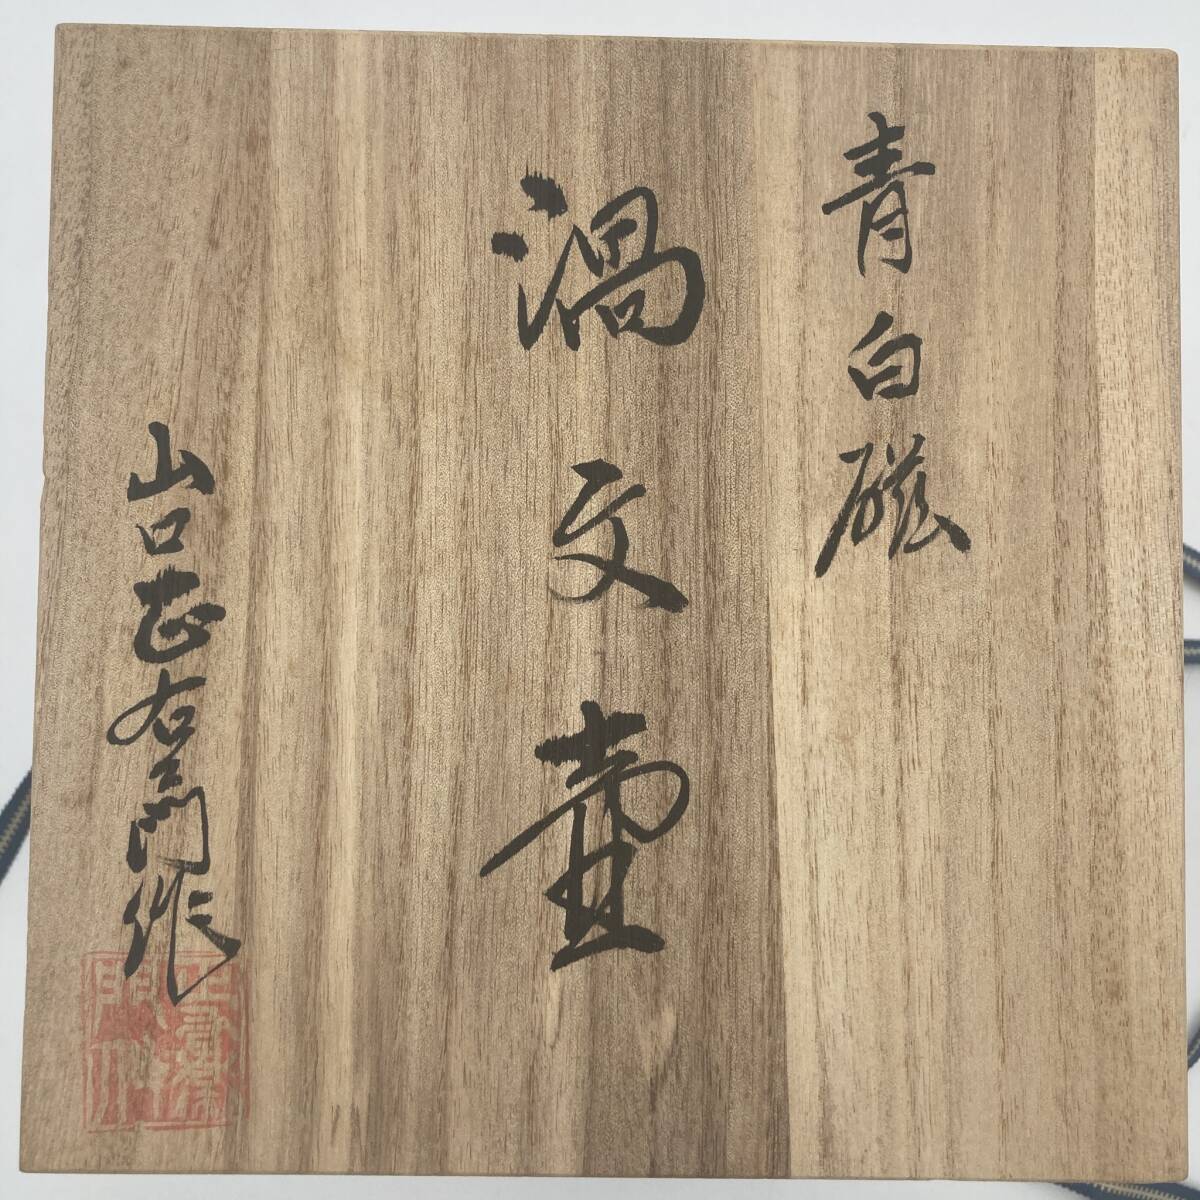 青白磁
渦文壷
山口正右エ門作